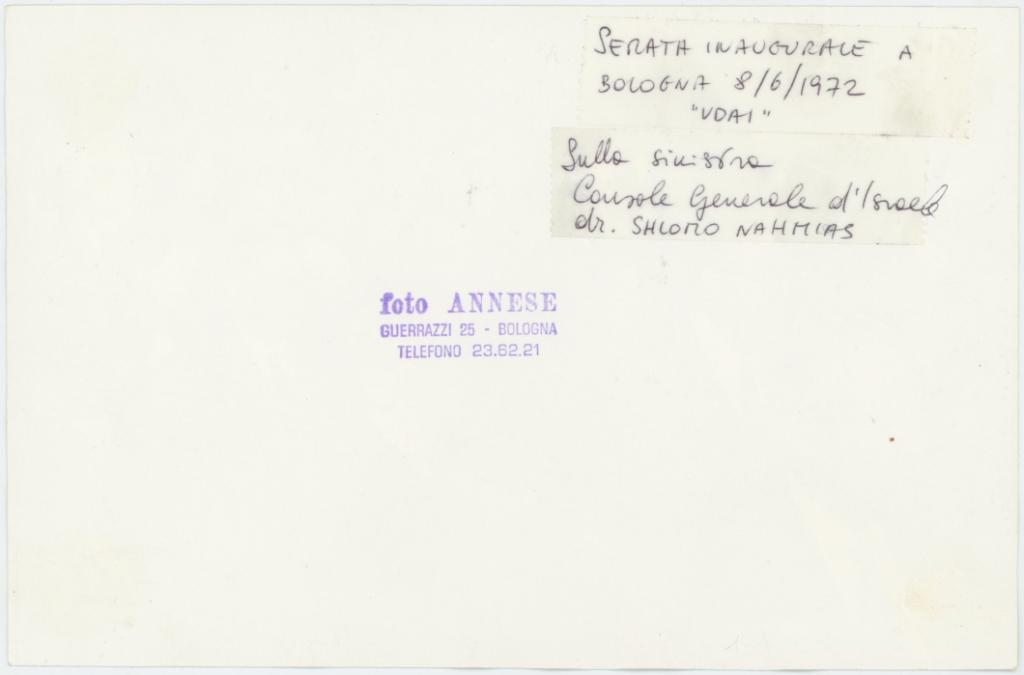 SERATA INAUGURALE A
BOLOGNA 8/6/1972
"VDAI"
Sulla sinistra
Console Generale d'Israele
dr. SHLOMO NAHMIAS
foto ANNESE
GUERRAZZI 25 - BOLOGNA
TELEFONO 23.62.21